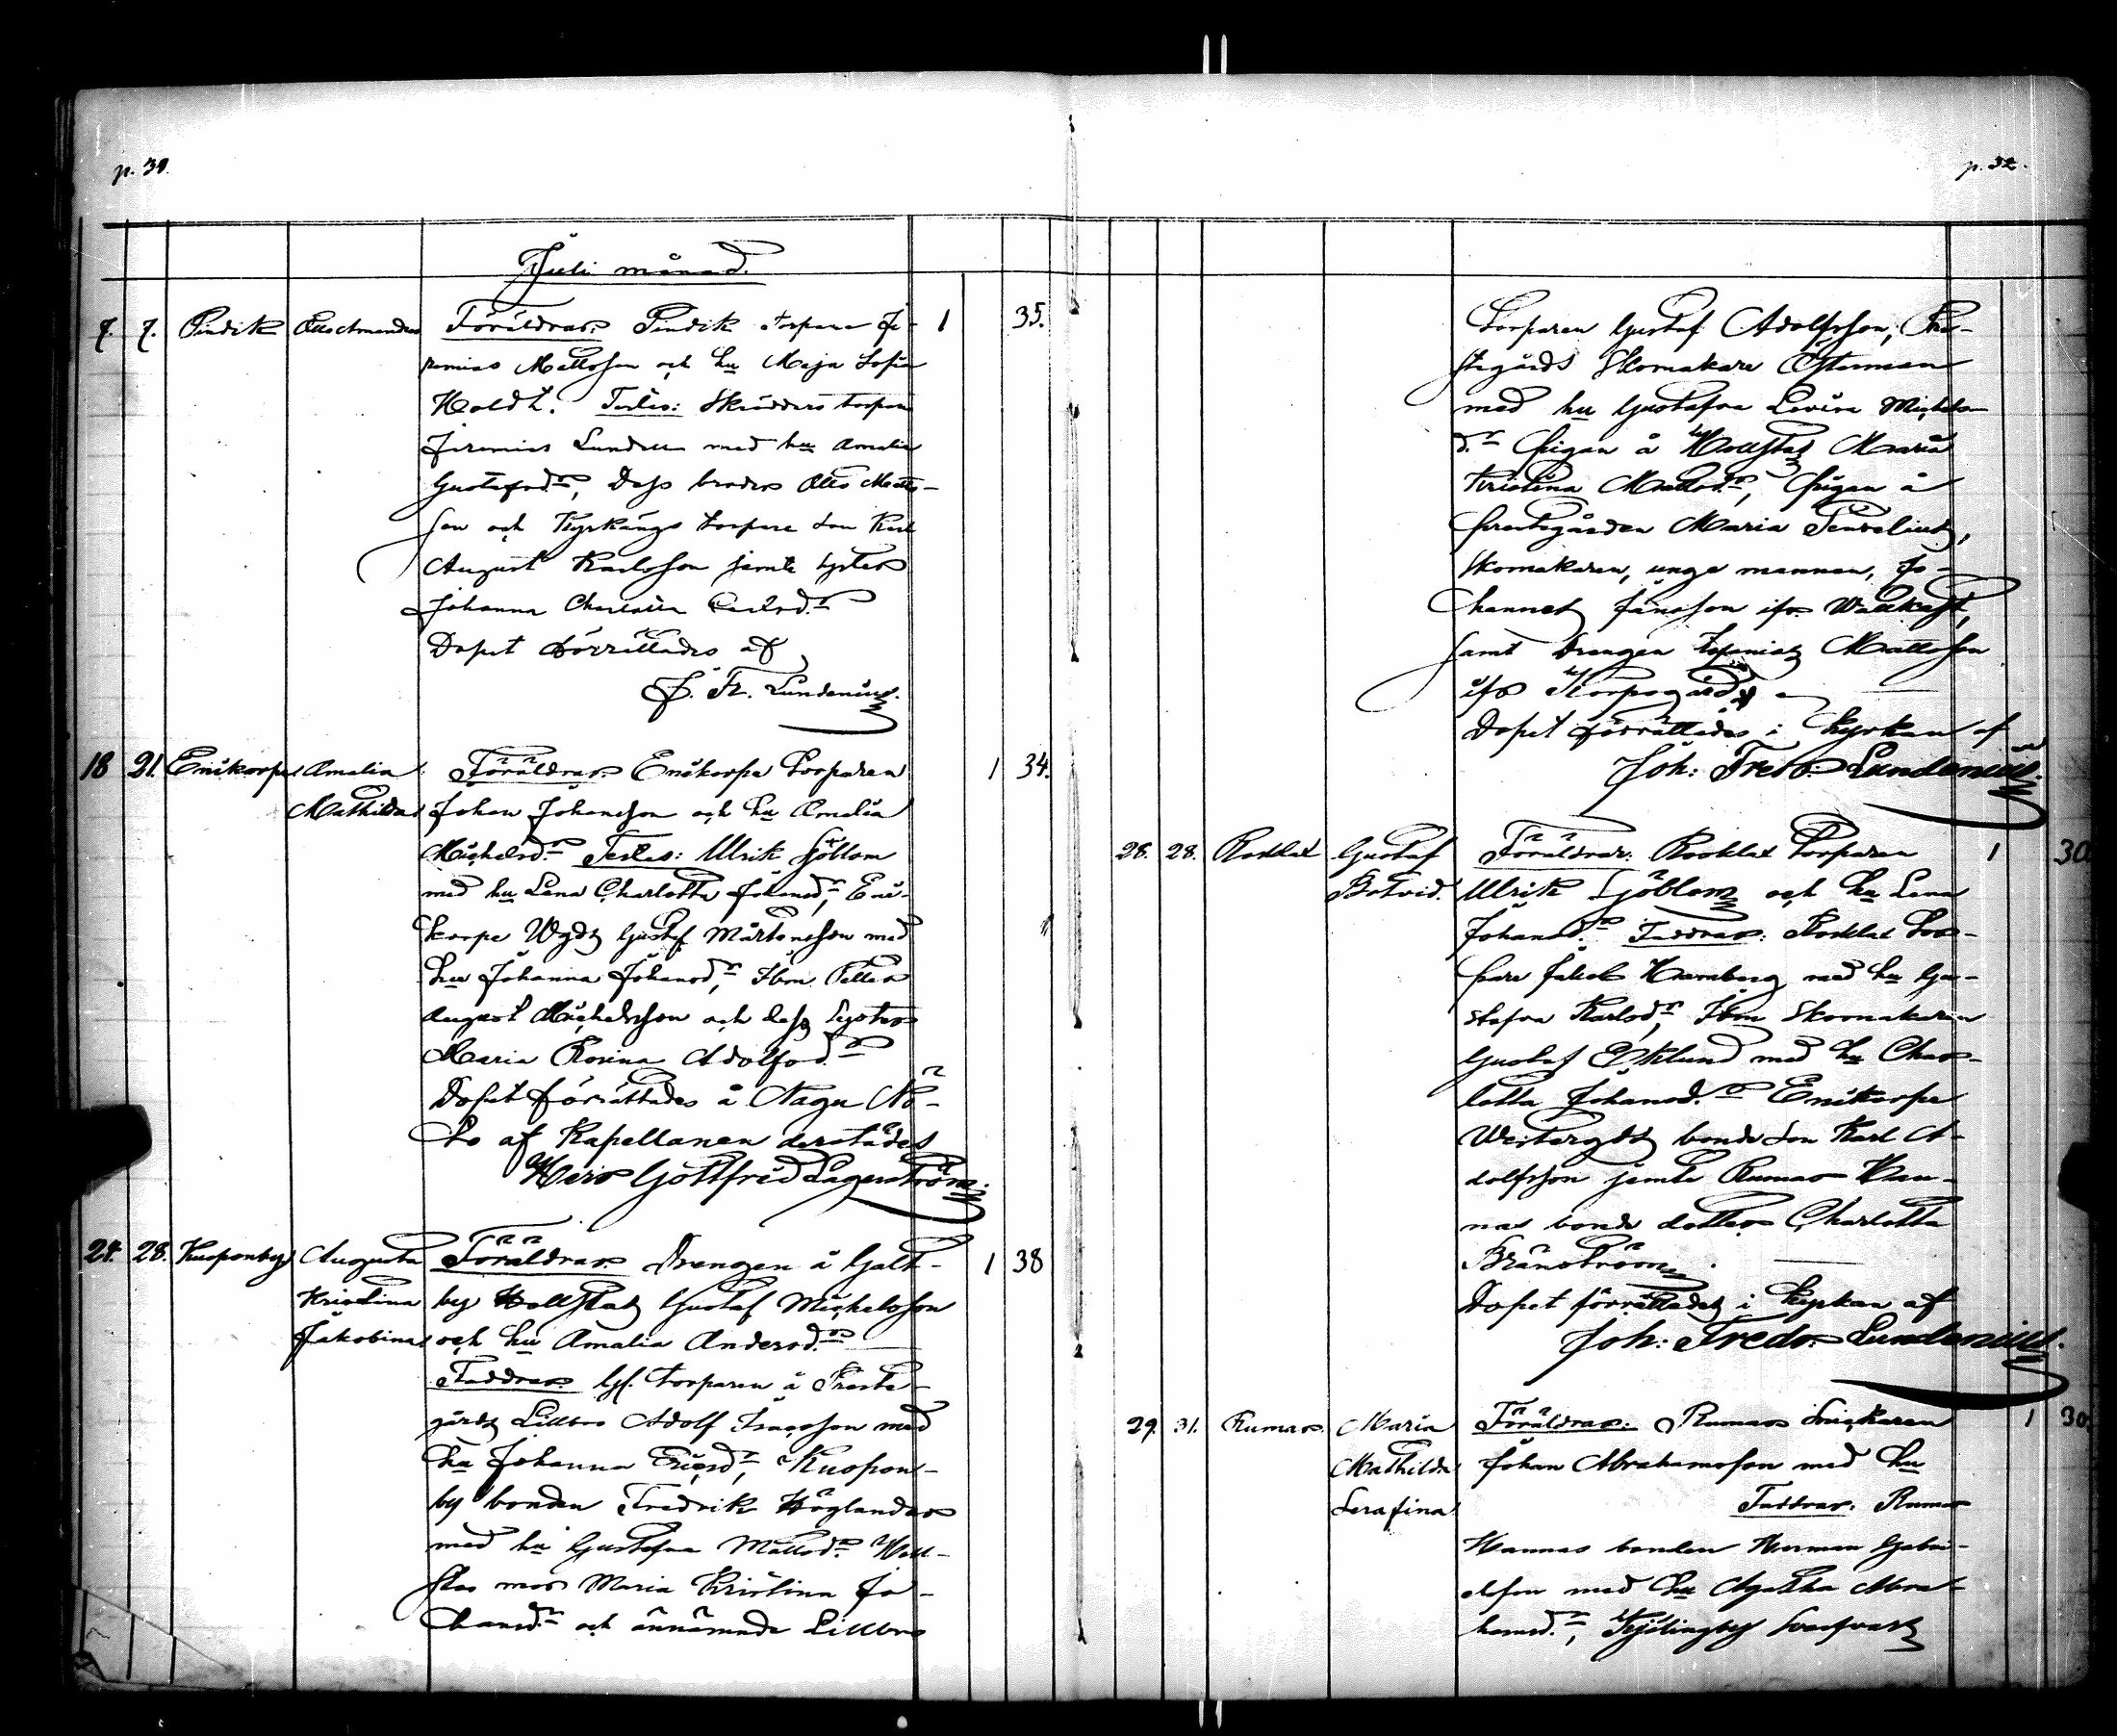 p. 31.
Juli månad.
7. 7. Pindik Otto Amandus Föräldrar: Pindik torpare Je- 1 35.
remias Mattsson och hu Maja Sofia
Holdt. Testes: Skräddars torpare
Jeremias Lundell med hu Amalia
Gustafsdr, Dess broder Otto Matts-
son och Kyrkängs torpare son Karl
August Karlsson jemte syster
Johanna Charlotta Carlsdr
Dopet förrättades af
J. Fr. Lundenius.
18 21. Eniskorpa Amalia Föräldrar: Eniskorpa torparen 1 34.
Mathilda Johan Johansson och hu Amalia
Michelsdr Testes: Ulrik Sjöblom
med hu Lena Charlotta Johansdr, Eni-
korpa Wgds Gustaf Mårtensson med
hu Johanna Johansdr, Ibm. Petter
August Michelsson och dess Syster
Maria Rosina Adolfsdr
Dopet förrättades å Nagu Nö-
to af Kapellanen derstädes
Herr Gottfrid Lagerström.
24. 28. Kuoponby Augusta Föräldrar: Drengen å Galt- 1 38
Kristina by Hollstas Gustaf Michelsson
Jakobina och hu Amalia Andersdr
Faddrar: Gf. torparen å Preste-
gårds Lillbro Adolf Isacsson med
hu Johanna Ericsdr, Kuopon-
by bonden Fredrik Höglander
med hu Gustafva Mattsdr. Holl-
stas mor Maria Kristina Jo-
hansdr och annämnde Lillbro
p. 32.
Torparen Gustaf Adolfsson, Pre-
stegårds Skomakare Österman
med hu Gustafva Lovisa Michels-
dr Pigan å Hollstas Maria
Kristina Mattsdr, Pigan å
Prestegården Maria Tenvelius,
Skomakaren, unge mannen, Jo-
hannes Jansson ifr. Wattkast,
samt Drengen Mattsson
ifr Korpogård
Dopet förrättades i Kyrkan af
Joh: Fredr: Lundenius.
28. 28. Rosklax Gustaf Föräldrar: Rosklax torparen 1 30
Botvid. Ulrik Sjöblom och hu Lena
Johansdr. Faddrar: Rosklax tor-
pare Jakob Hamberg med hu Gu-
stafva Karlsdr, Ibm Skomakaren
Gustaf Eklund med hu Char-
lotta Johansdr. Eniskorpa
Westergds bonde Son Karl A-
dolfsson jemte Rumar Han-
nas bonde dotter Charlotta
Bränström.
Dopet förrättades i Kyrkan af
Joh: Fredr: Lundenius.
29. 31. Rumar. Maria Föräldrar: Rumar Snickaren 1 30.
Mathilda Johan Abrahamsson med hu
Serafina Faddrar: Rumar
Hannas bonden Herman Gabri-
elsson med hu Agatha Abra-
hamsdr, Kyrlingby